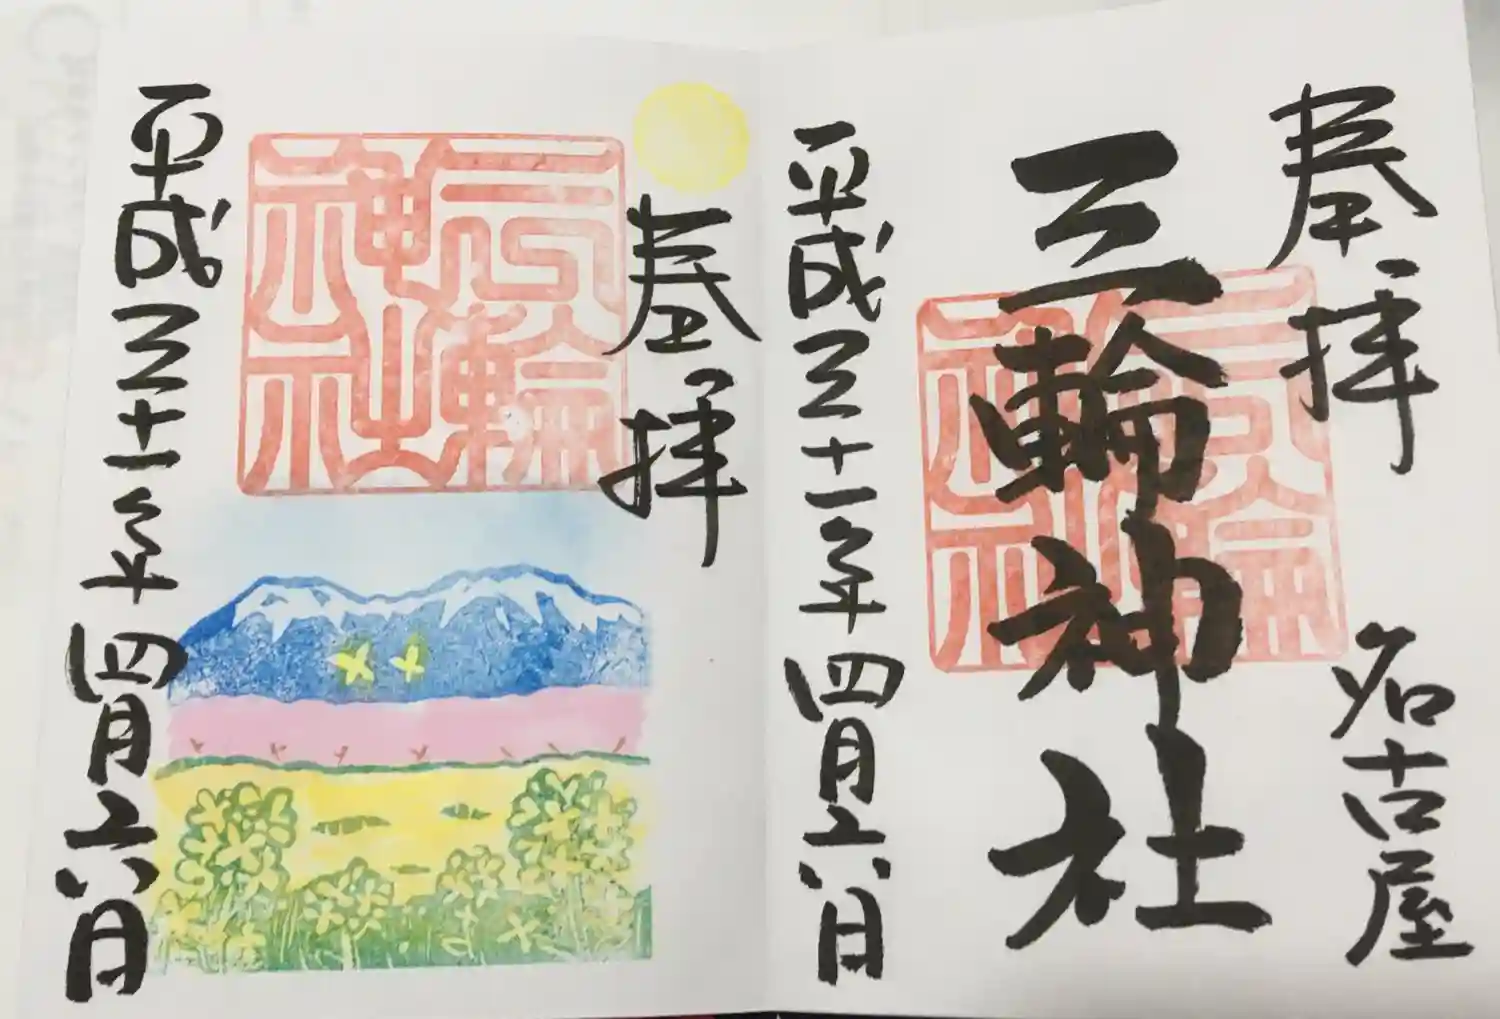 奉拝
名古屋
三輪神社
三輪神社
平成三十一年四月六日
奉拝
三輪神社
平成三十一年四月六日